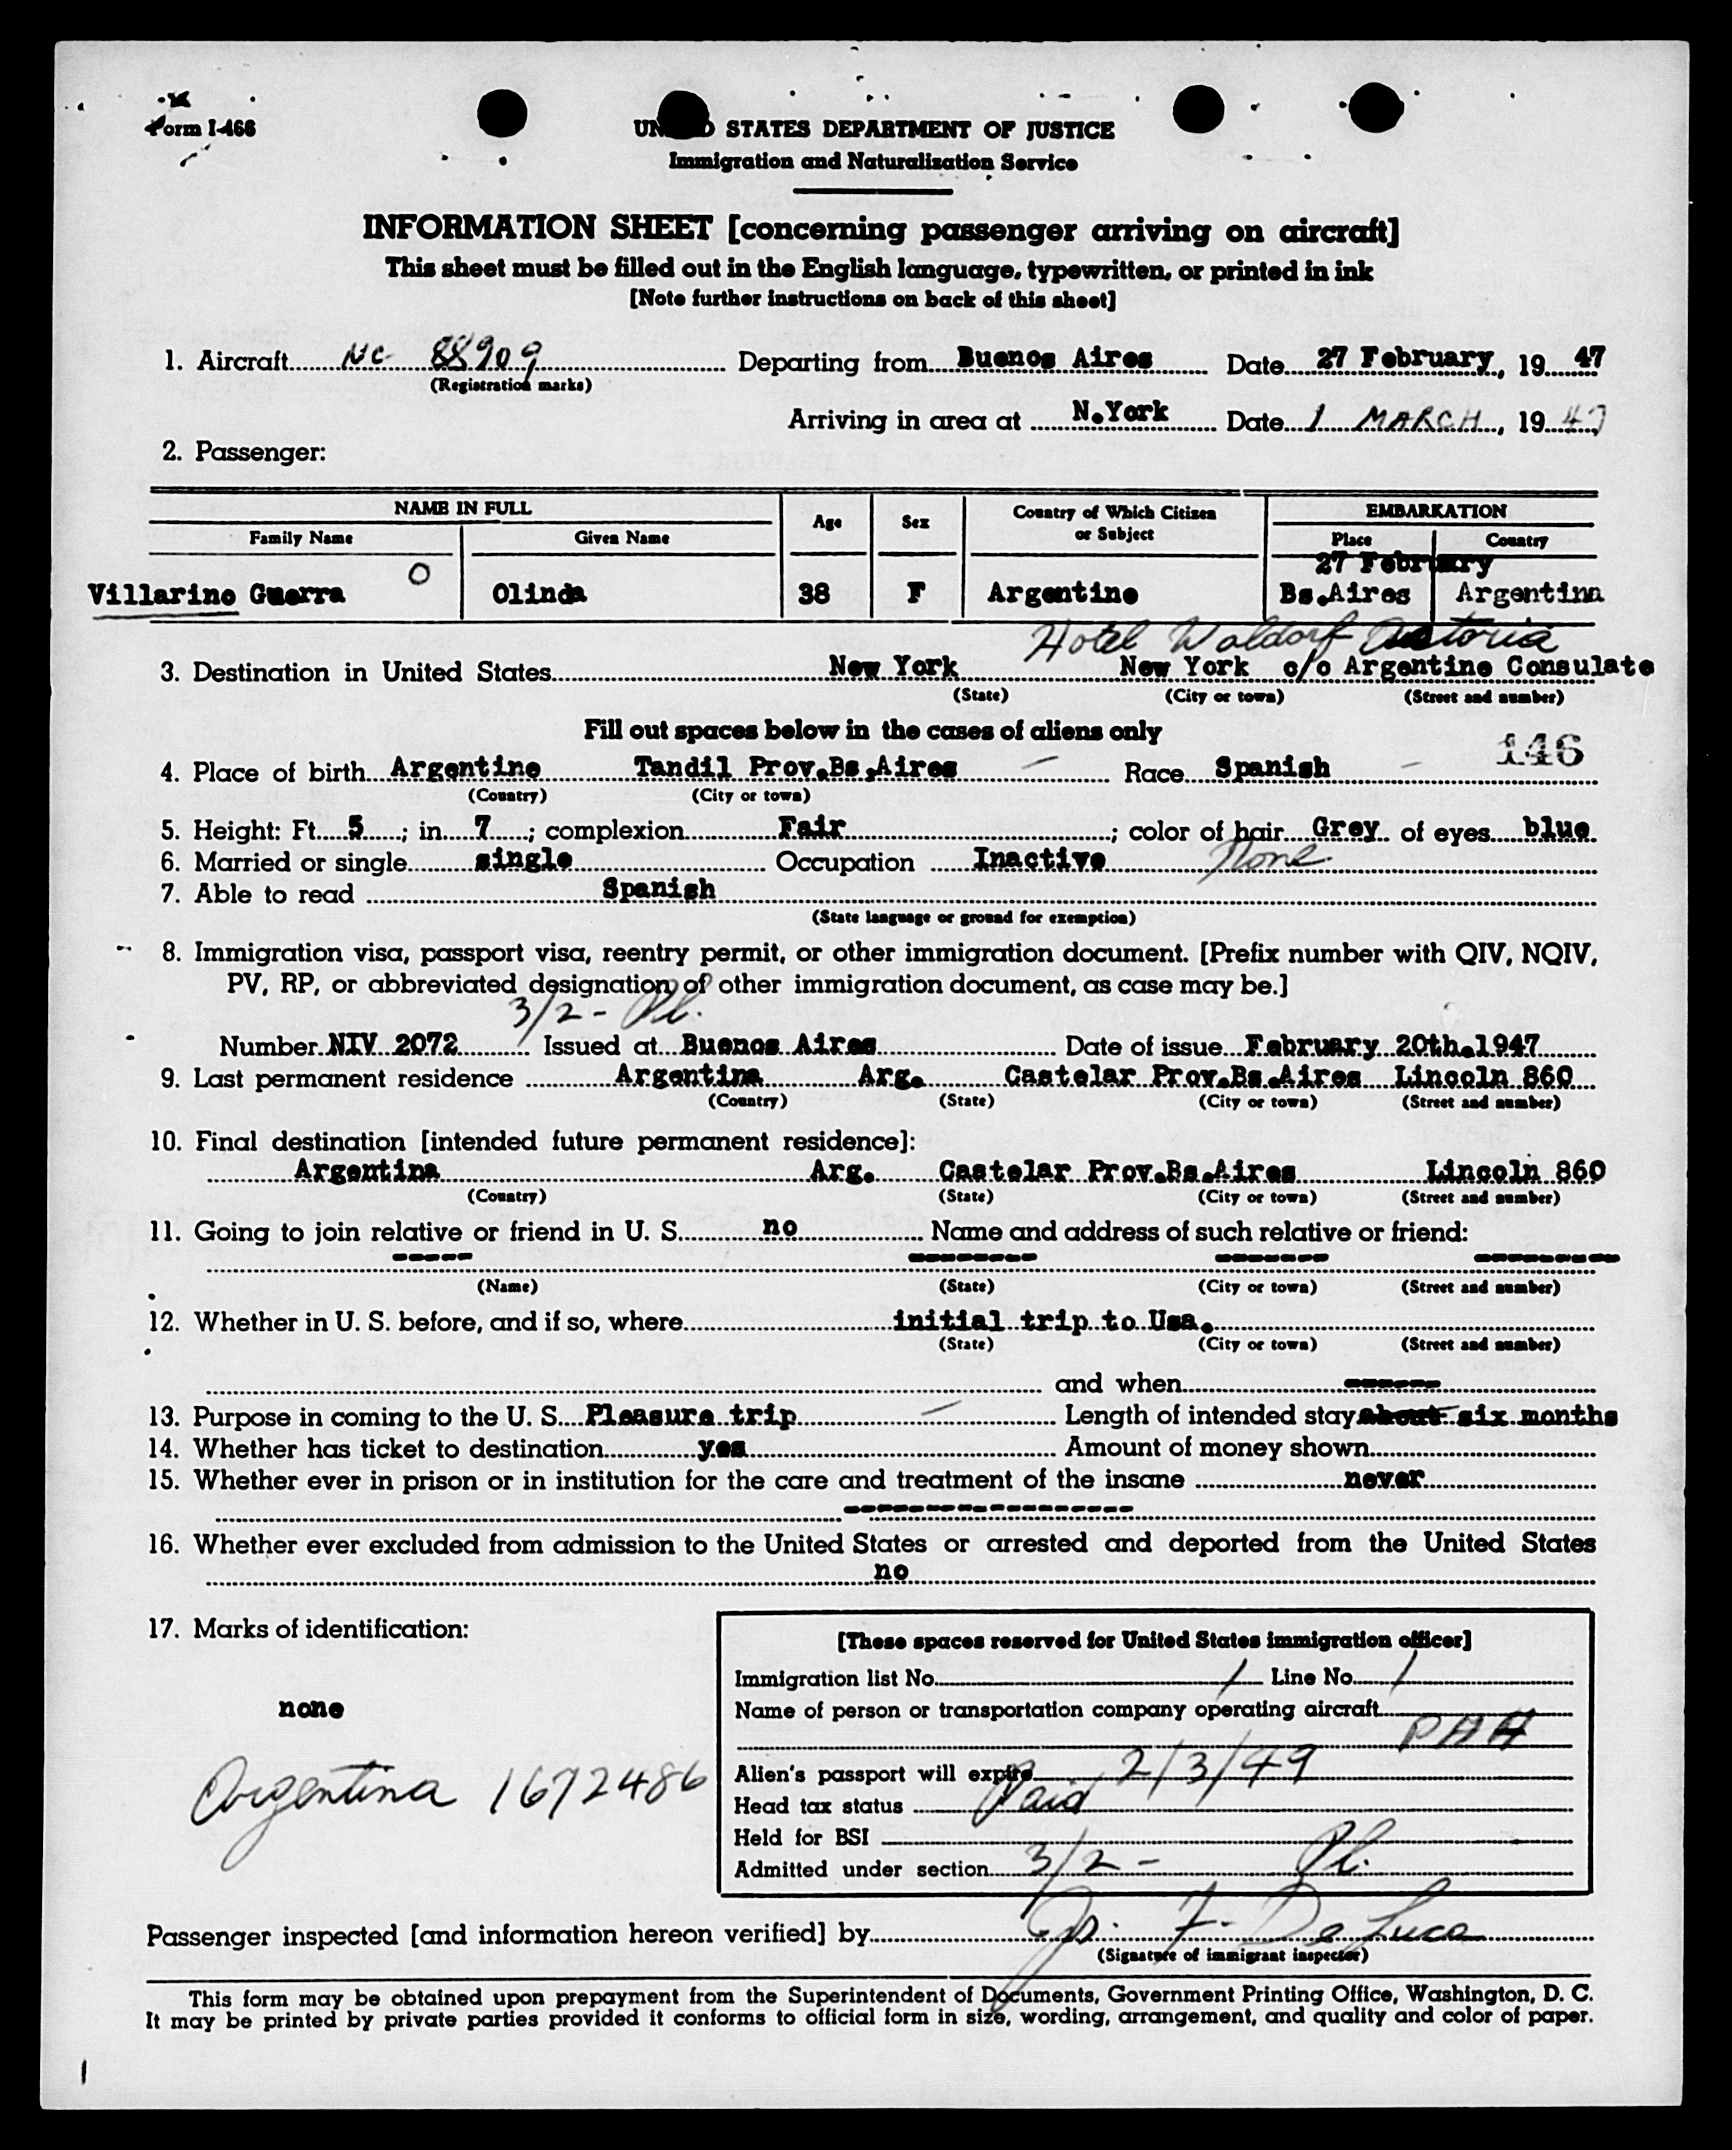 Form I-466
UNITED STATES DEPARTMENT OF JUSTICE
Immigration and Naturalization Service
INFORMATION SHEET [concerning passenger arriving on aircraft]
This sheet must be filled out in the English language, typewritten, or printed in ink
[Note further instructions on back of this sheet]
1. Aircraft NC 88909 Departing from Buenos Aires Date 27 February, 19 47
(Registration marks)
Arriving in area at N.York Date 1 MARCH, 19 47
2. Passenger:
NAME IN FULL Age Sex Country of Which Citizen or Subject EMBARKATION
Family Name Given Name Place Country
27 February
Villarino Guerra O Olinda 38 F Argentine Bs.Aires Argentina
Hotel Waldorf Astoria
3. Destination in United States New York New York c/o Argentine Consulate
(State) (City or town) (Street and number)
Fill out spaces below in the cases of aliens only
146
4. Place of birth Argentine Tandil Prov.Bs.Aires Race Spanish
(Country) (City or town)
5. Height: Ft. 5; in. 7; complexion Fair; color of hair Grey of eyes blue
6. Married or single single Occupation Inactive None
7. Able to read Spanish
(State language or ground for exemption)
8. Immigration visa, passport visa, reentry permit, or other immigration document. [Prefix number with QIV, NQIV,
PV, RP, or abbreviated designation of other immigration document, as case may be.]
3/2 - Pl.
Number NIV 2072 Issued at Buenos Aires Date of issue February 20th.1947
9. Last permanent residence Argentina Arg. Castelar Prov.Bs.Aires Lincoln 860
(Country) (State) (City or town) (Street and number)
10. Final destination [intended future permanent residence]:
Argentina Arg. Castelar Prov.Bs.Aires Lincoln 860
(Country) (State) (City or town) (Street and number)
11. Going to join relative or friend in U. S. no Name and address of such relative or friend:
(Name) (State) (City or town) (Street and number)
12. Whether in U. S. before, and if so, where initial trip to Usa.
(State) (City or town) (Street and number)
and when
13. Purpose in coming to the U. S. Pleasure trip Length of intended stay about six months
14. Whether has ticket to destination yes Amount of money shown
15. Whether ever in prison or in institution for the care and treatment of the insane never
16. Whether ever excluded from admission to the United States or arrested and deported from the United States
no
17. Marks of identification:
none
Argentina 1672486
[These spaces reserved for United States immigration officer]
Immigration list No. 1 Line No. 1
Name of person or transportation company operating aircraft
PAA
Alien's passport will expire 2/3/49
Head tax status Paid
Held for BSI
Admitted under section 3/2 - Pl.
Passenger inspected [and information hereon verified] by Js. F. De Luca
(Signature of immigrant inspector)
This form may be obtained upon prepayment from the Superintendent of Documents, Government Printing Office, Washington, D. C.
It may be printed by private parties provided it conforms to official form in size, wording, arrangement, and quality and color of paper.
1